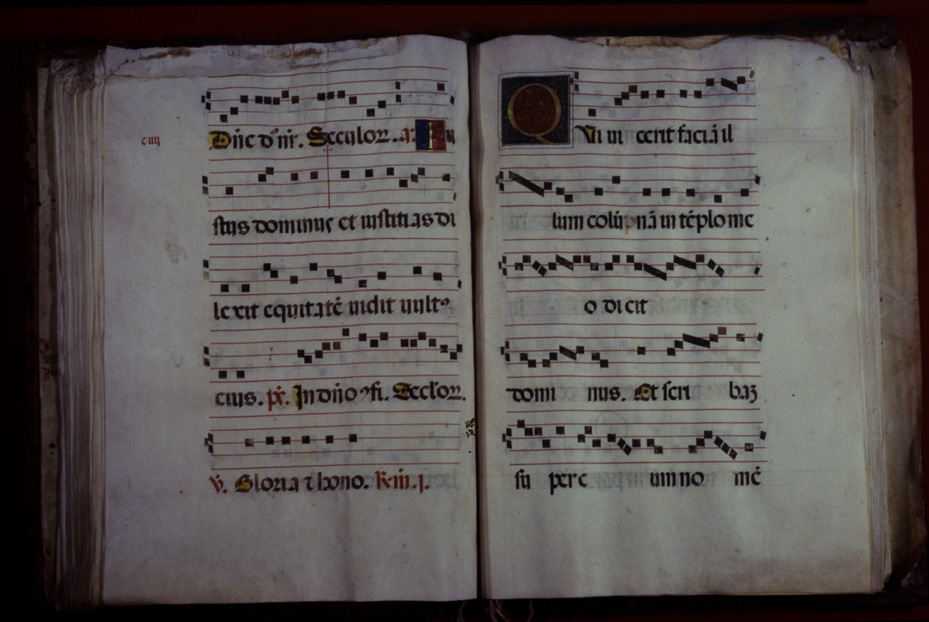 cuij
Dñe dñr. Seculor. a. Iu
stus dominus et iustitias di
lexit equitatē uidit uult9
eius. ps. In dño 9fi. Seclor.
V. Gloria et hono. R. iii. j.
QVi uicerit faciā il
lum colūpnā in tēplo me
o dicit
dominus. Et scribaȝ
super eum nomē